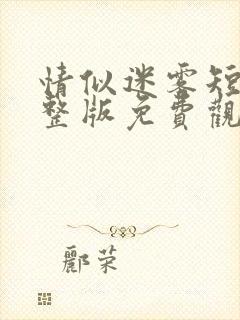 情似迷雾短
整版免費觀
酈荣